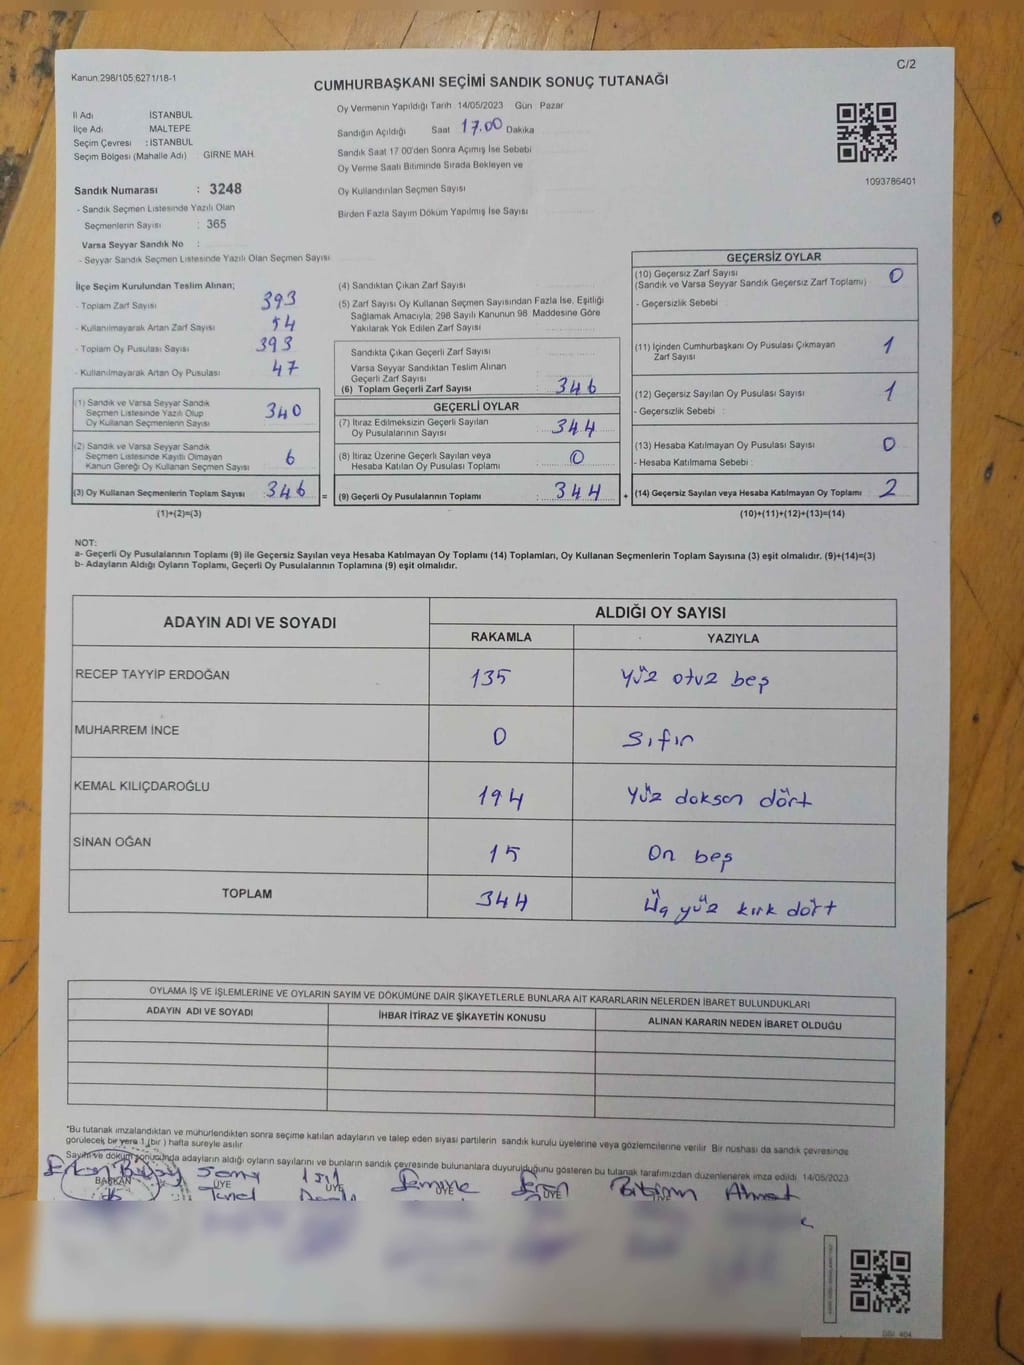 Kanun:298/105;6271/18-1
C/2
CUMHURBAŞKANI SEÇİMİ SANDIK SONUÇ TUTANAĞI
İl Adı İSTANBUL
İlçe Adı MALTEPE
Seçim Çevresi : İSTANBUL
Seçim Bölgesi (Mahalle Adı) GİRNE MAH.
Oy Vermenin Yapıldığı Tarih 14/05/2023 Gün Pazar
Sandığın Açıldığı Saat 17.00 Dakika
Sandık Saat 17 00'den Sonra Açımış İse Sebebi
Oy Verme Saati Bitiminde Sırada Bekleyen ve
Oy Kullandırılan Seçmen Sayısı
Birden Fazla Sayım Döküm Yapılmış İse Sayısı
1093786401
Sandık Numarası : 3248
- Sandık Seçmen Listesinde Yazılı Olan
Seçmenlerin Sayısı : 365
Varsa Seyyar Sandık No :
- Seyyar Sandık Seçmen Listesinde Yazılı Olan Seçmen Sayısı
İlçe Seçim Kurulundan Teslim Alınan;
- Toplam Zarf Sayısı 393
- Kullanılmayarak Artan Zarf Sayısı 54
- Toplam Oy Pusulası Sayısı 393
- Kullanılmayarak Artan Oy Pusulası 47
(1) Sandık ve Varsa Seyyar Sandık
Seçmen Listesinde Yazılı Olup
Oy Kullanan Seçmenlerin Sayısı 340
(2) Sandık ve Varsa Seyyar Sandık
Seçmen Listesinde Kayıtlı Olmayan
Kanun Gereği Oy Kullanan Seçmen Sayısı 6
(3) Oy Kullanan Seçmenlerin Toplam Sayısı : 346 =
(1)+(2)=(3)
(4) Sandıktan Çıkan Zarf Sayısı
(5) Zarf Sayısı Oy Kullanan Seçmen Sayısından Fazla İse, Eşitliği
Sağlamak Amacıyla, 298 Sayılı Kanunun 98 Maddesine Göre
Yakılarak Yok Edilen Zarf Sayısı
Sandıkta Çıkan Geçerli Zarf Sayısı
Varsa Seyyar Sandıktan Teslim Alınan
Geçerli Zarf Sayısı
(6) Toplam Geçerli Zarf Sayısı : 346
GEÇERLİ OYLAR
(7) İtiraz Edilmeksizin Geçerli Sayılan
Oy Pusulalarının Sayısı : 344
(8) İtiraz Üzerine Geçerli Sayılan veya
Hesaba Katılan Oy Pusulası Toplamı : 0
(9) Geçerli Oy Pusulalarının Toplamı : 344 +
GEÇERSİZ OYLAR
(10) Geçersiz Zarf Sayısı
(Sandık ve Varsa Seyyar Sandık Geçersiz Zarf Toplamı) 0
- Geçersizlik Sebebi
(11) İçinden Cumhurbaşkanı Oy Pusulası Çıkmayan
Zarf Sayısı 1
(12) Geçersiz Sayılan Oy Pusulası Sayısı 1
- Geçersizlik Sebebi :
(13) Hesaba Katılmayan Oy Pusulası Sayısı 0
- Hesaba Katılmama Sebebi :
(14) Geçersiz Sayılan veya Hesaba Katılmayan Oy Toplamı 2
(10)+(11)+(12)+(13)=(14)
NOT:
a- Geçerli Oy Pusulalarının Toplamı (9) ile Geçersiz Sayılan veya Hesaba Katılmayan Oy Toplamı (14) Toplamları, Oy Kullanan Seçmenlerin Toplam Sayısına (3) eşit olmalıdır. (9)+(14)=(3)
b- Adayların Aldığı Oyların Toplamı, Geçerli Oy Pusulalarının Toplamına (9) eşit olmalıdır.
ADAYIN ADI VE SOYADI
ALDIĞI OY SAYISI
RAKAMLA YAZIYLA
RECEP TAYYİP ERDOĞAN 135 Yüz otuz beş
MUHARREM İNCE 0 Sıfır
KEMAL KILIÇDAROĞLU 194 Yüz doksan dört
SİNAN OĞAN 15 On beş
TOPLAM 344 Üç yüz kırk dört
OYLAMA İŞ VE İŞLEMLERİNE VE OYLARIN SAYIM VE DÖKÜMÜNE DAİR ŞİKAYETLERLE BUNLARA AİT KARARLARIN NELERDEN İBARET BULUNDUKLARI
ADAYIN ADI VE SOYADI İHBAR İTİRAZ VE ŞİKAYETİN KONUSU ALINAN KARARIN NEDEN İBARET OLDUĞU
*Bu tutanak imzalandıktan ve mühürlendikten sonra seçime katılan adayların ve talep eden siyasi partilerin sandık kurulu üyelerine veya gözlemcilerine verilir. Bir nüshası da sandık çevresinde
görülecek bir yere 1 (bir) hafta süreyle asılır
Sayım ve döküm sonucunda adayların aldığı oyların sayılarını ve bunların sandık çevresinde bulunanlara duyurulduğunu gösteren bu tutanak tarafımızdan düzenlenerek imza edildi 14/05/2023
BAŞKAN ÜYE ÜYE ÜYE ÜYE Ahmet